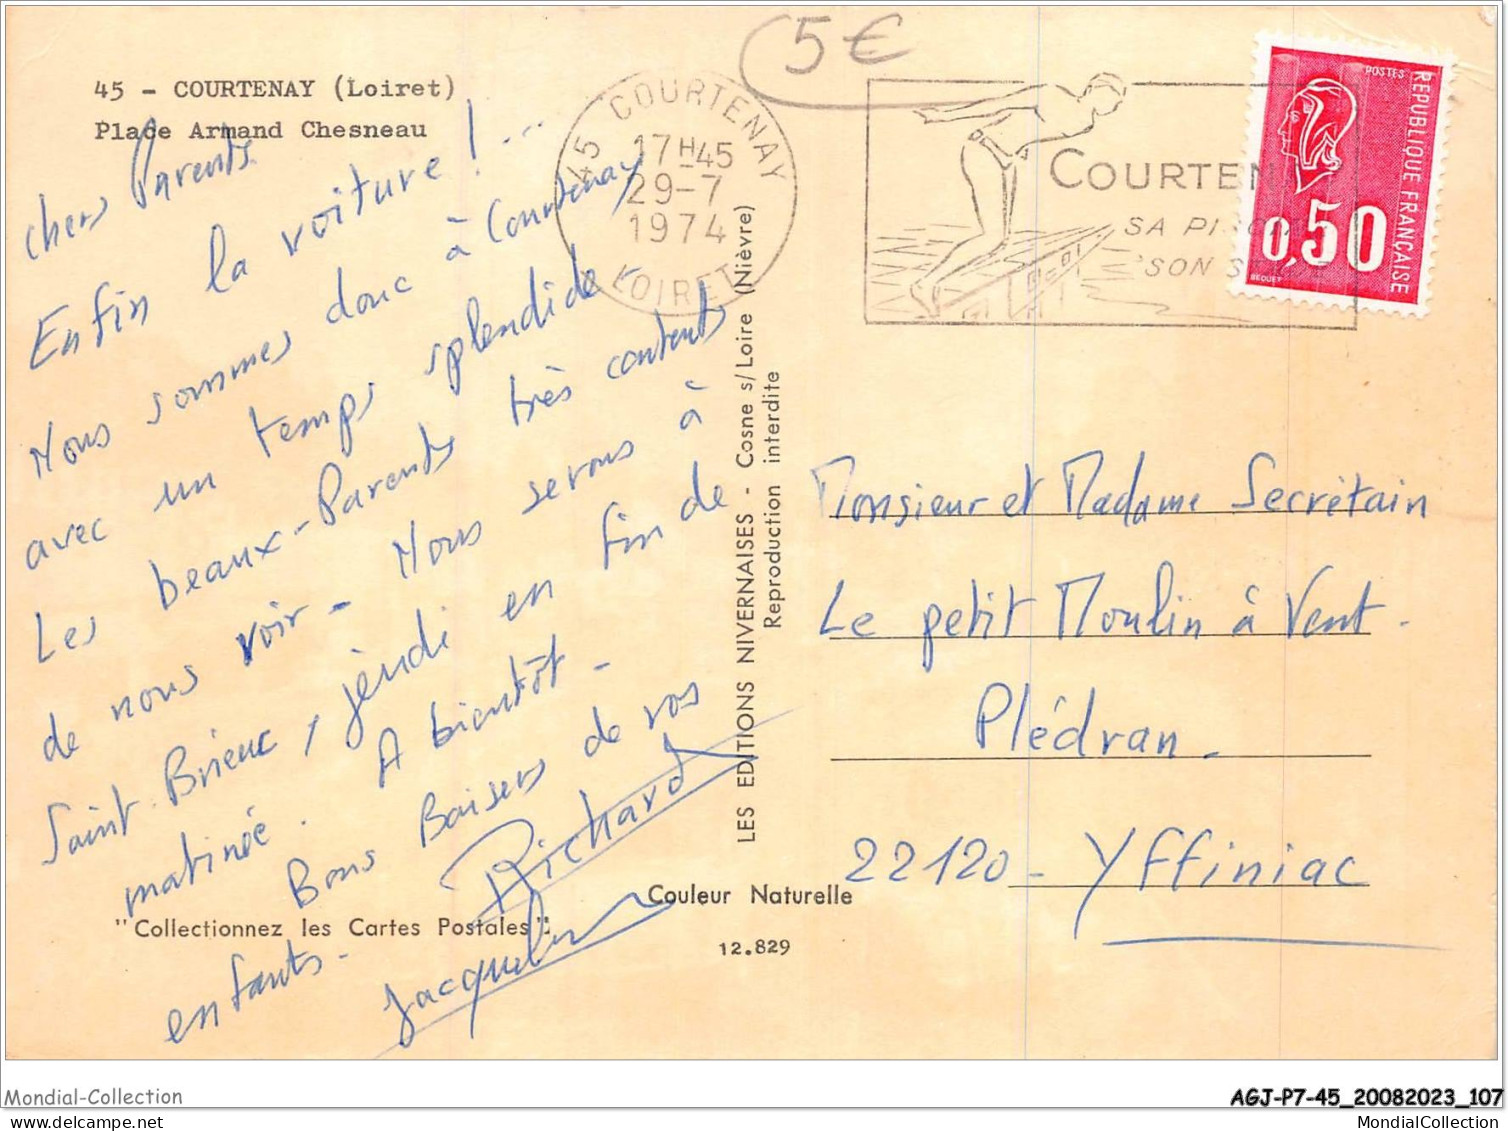 5€
45 - COURTENAY (Loiret)
Place Armand Chesneau
45 COURTENAY
17H45
29-7
1974
LOIRET
COURTEN
SA PI
SON S
POSTES
REPUBLIQUE FRANÇAISE
0,50
BEQUET
Chers Parents
Enfin la voiture ! ...
Nous sommes donc à Courtenay
avec un temps splendide -
Les beaux-Parents très contents
de nous voir - Nous serons à
Saint Brieuc, jeudi en fin de
matinée. A bientôt -
Bons Baisers de vos
enfants -
Richard
Jacqueline
LES EDITIONS NIVERNAISES - Cosne s/Loire (Nièvre)
Reproduction interdite
Monsieur et Madame Secrétain
Le petit Moulin à Vent.
Plédran.
22120 - Yffiniac
"Collectionnez les Cartes Postales"
Couleur Naturelle
12.829
Mondial-Collection
AGJ-P7-45_20082023_107
MondialCollection.com
MondialCollection